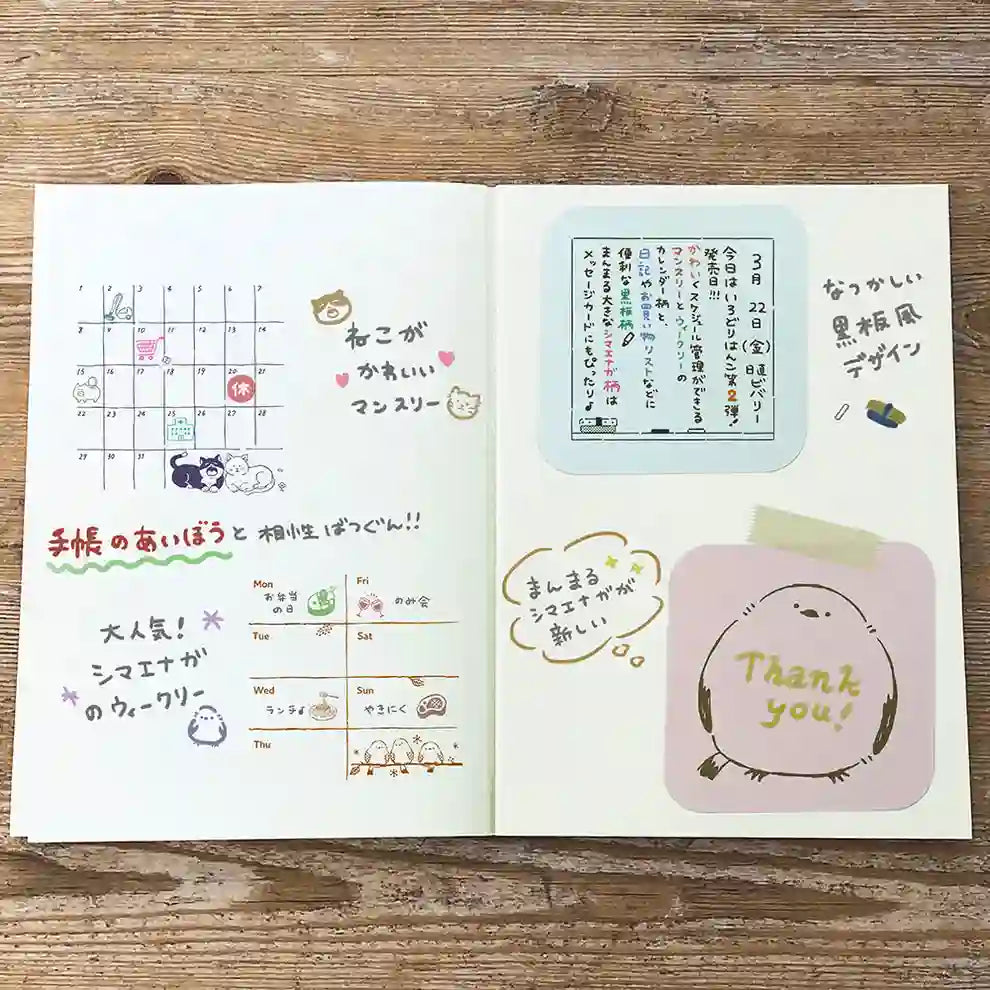 1 2 3 4 5 6 7
8 9 10 11 12 13 14
15 16 17 18 19 20 21
休
22 23 24 25 26 27 28
29 30 31
ねこが
かわいい
マンスリー
手帳のあいぼうと相性ばつぐん!!
大人気!
シマエナガ
のウィークリー
Mon
お弁当
の日
Tue
Wed
ランチ♪
Thu
Fri
のみ会
Sat
Sun
やきにく
3月 22日(金) 日直 ビバリー
今日はいろどりはんこ第2弾!
発売日!!!
かわいくスケジュール管理ができる
マンスリーとウィークリーの
カレンダー柄と、
日記やお買い物リストなどに
便利な黒板柄
まんまる大きなシマエナガ柄は
メッセージカードにもぴったり♪
なつかしい
黒板風
デザイン
まんまる
シマエナガが
新しい
Thank
you!